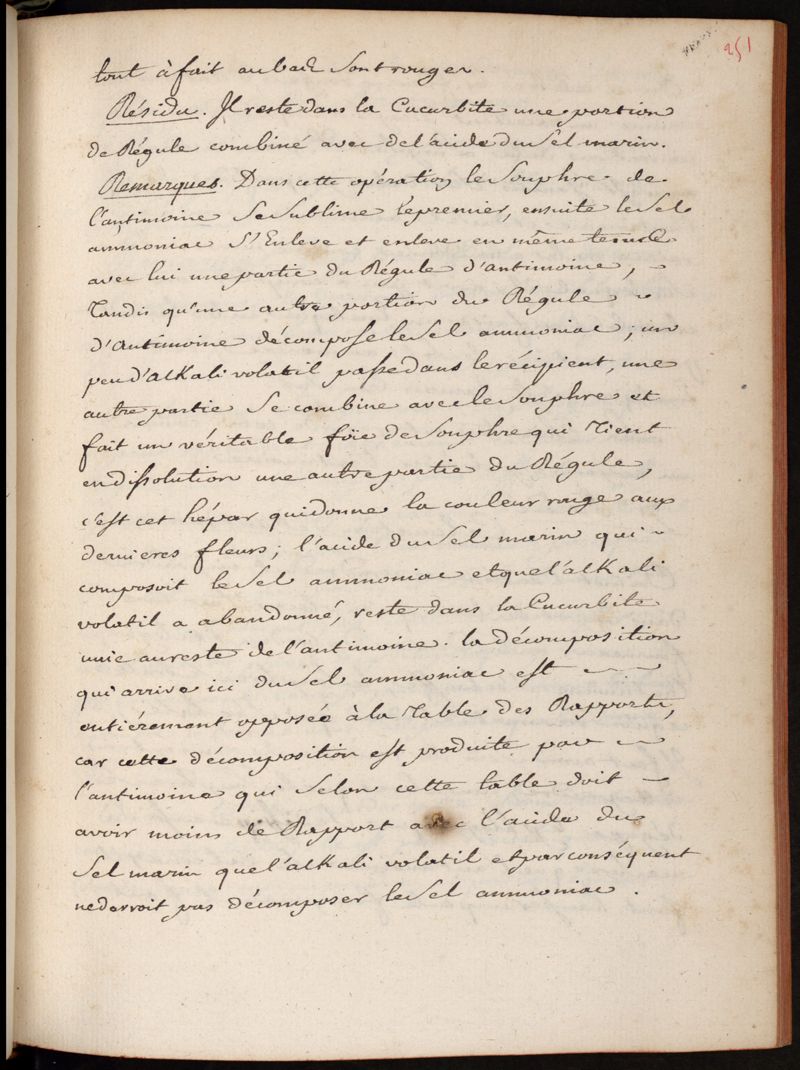 251
tout à fait au bas sont rouges.
Résidu. Il reste dans la Cucurbite une portion
de Régule combiné avec de l'acide du Sel marin.
Remarques. Dans cette opération le Souphre de
l'antimoine se Sublime le premier, ensuite le Sel
ammoniac S'Enleve et enleve en même tems
avec lui une partie du Régule d'antimoine,
Tandis qu'une autre portion du Régule
d'Antimoine décompose le Sel ammoniac; un
peu d'alKali volatil passe dans le récipient, une
autre partie Se combine avec le Souphre et
fait un véritable foïe de Souphre qui Tient
en dissolution une autre partie du Régule,
c'est cet hépar qui donne la couleur rouge aux
dernieres fleurs; l'acide du Sel marin qui
composoit le Sel ammoniac et que l'alKali
volatil a abandonné, reste dans la Cucurbite
unie au reste de l'antimoine. la décomposition
qui arrive ici du Sel ammoniac est
entiérement opposée à la Table des Rapports,
car cette décomposition est produite par
l'antimoine qui Selon cette table doit
avoir moins de Rapport avec l'acide du
Sel marin que l'alKali volatil et par conséquent
ne devroit pas décomposer le Sel ammoniac.